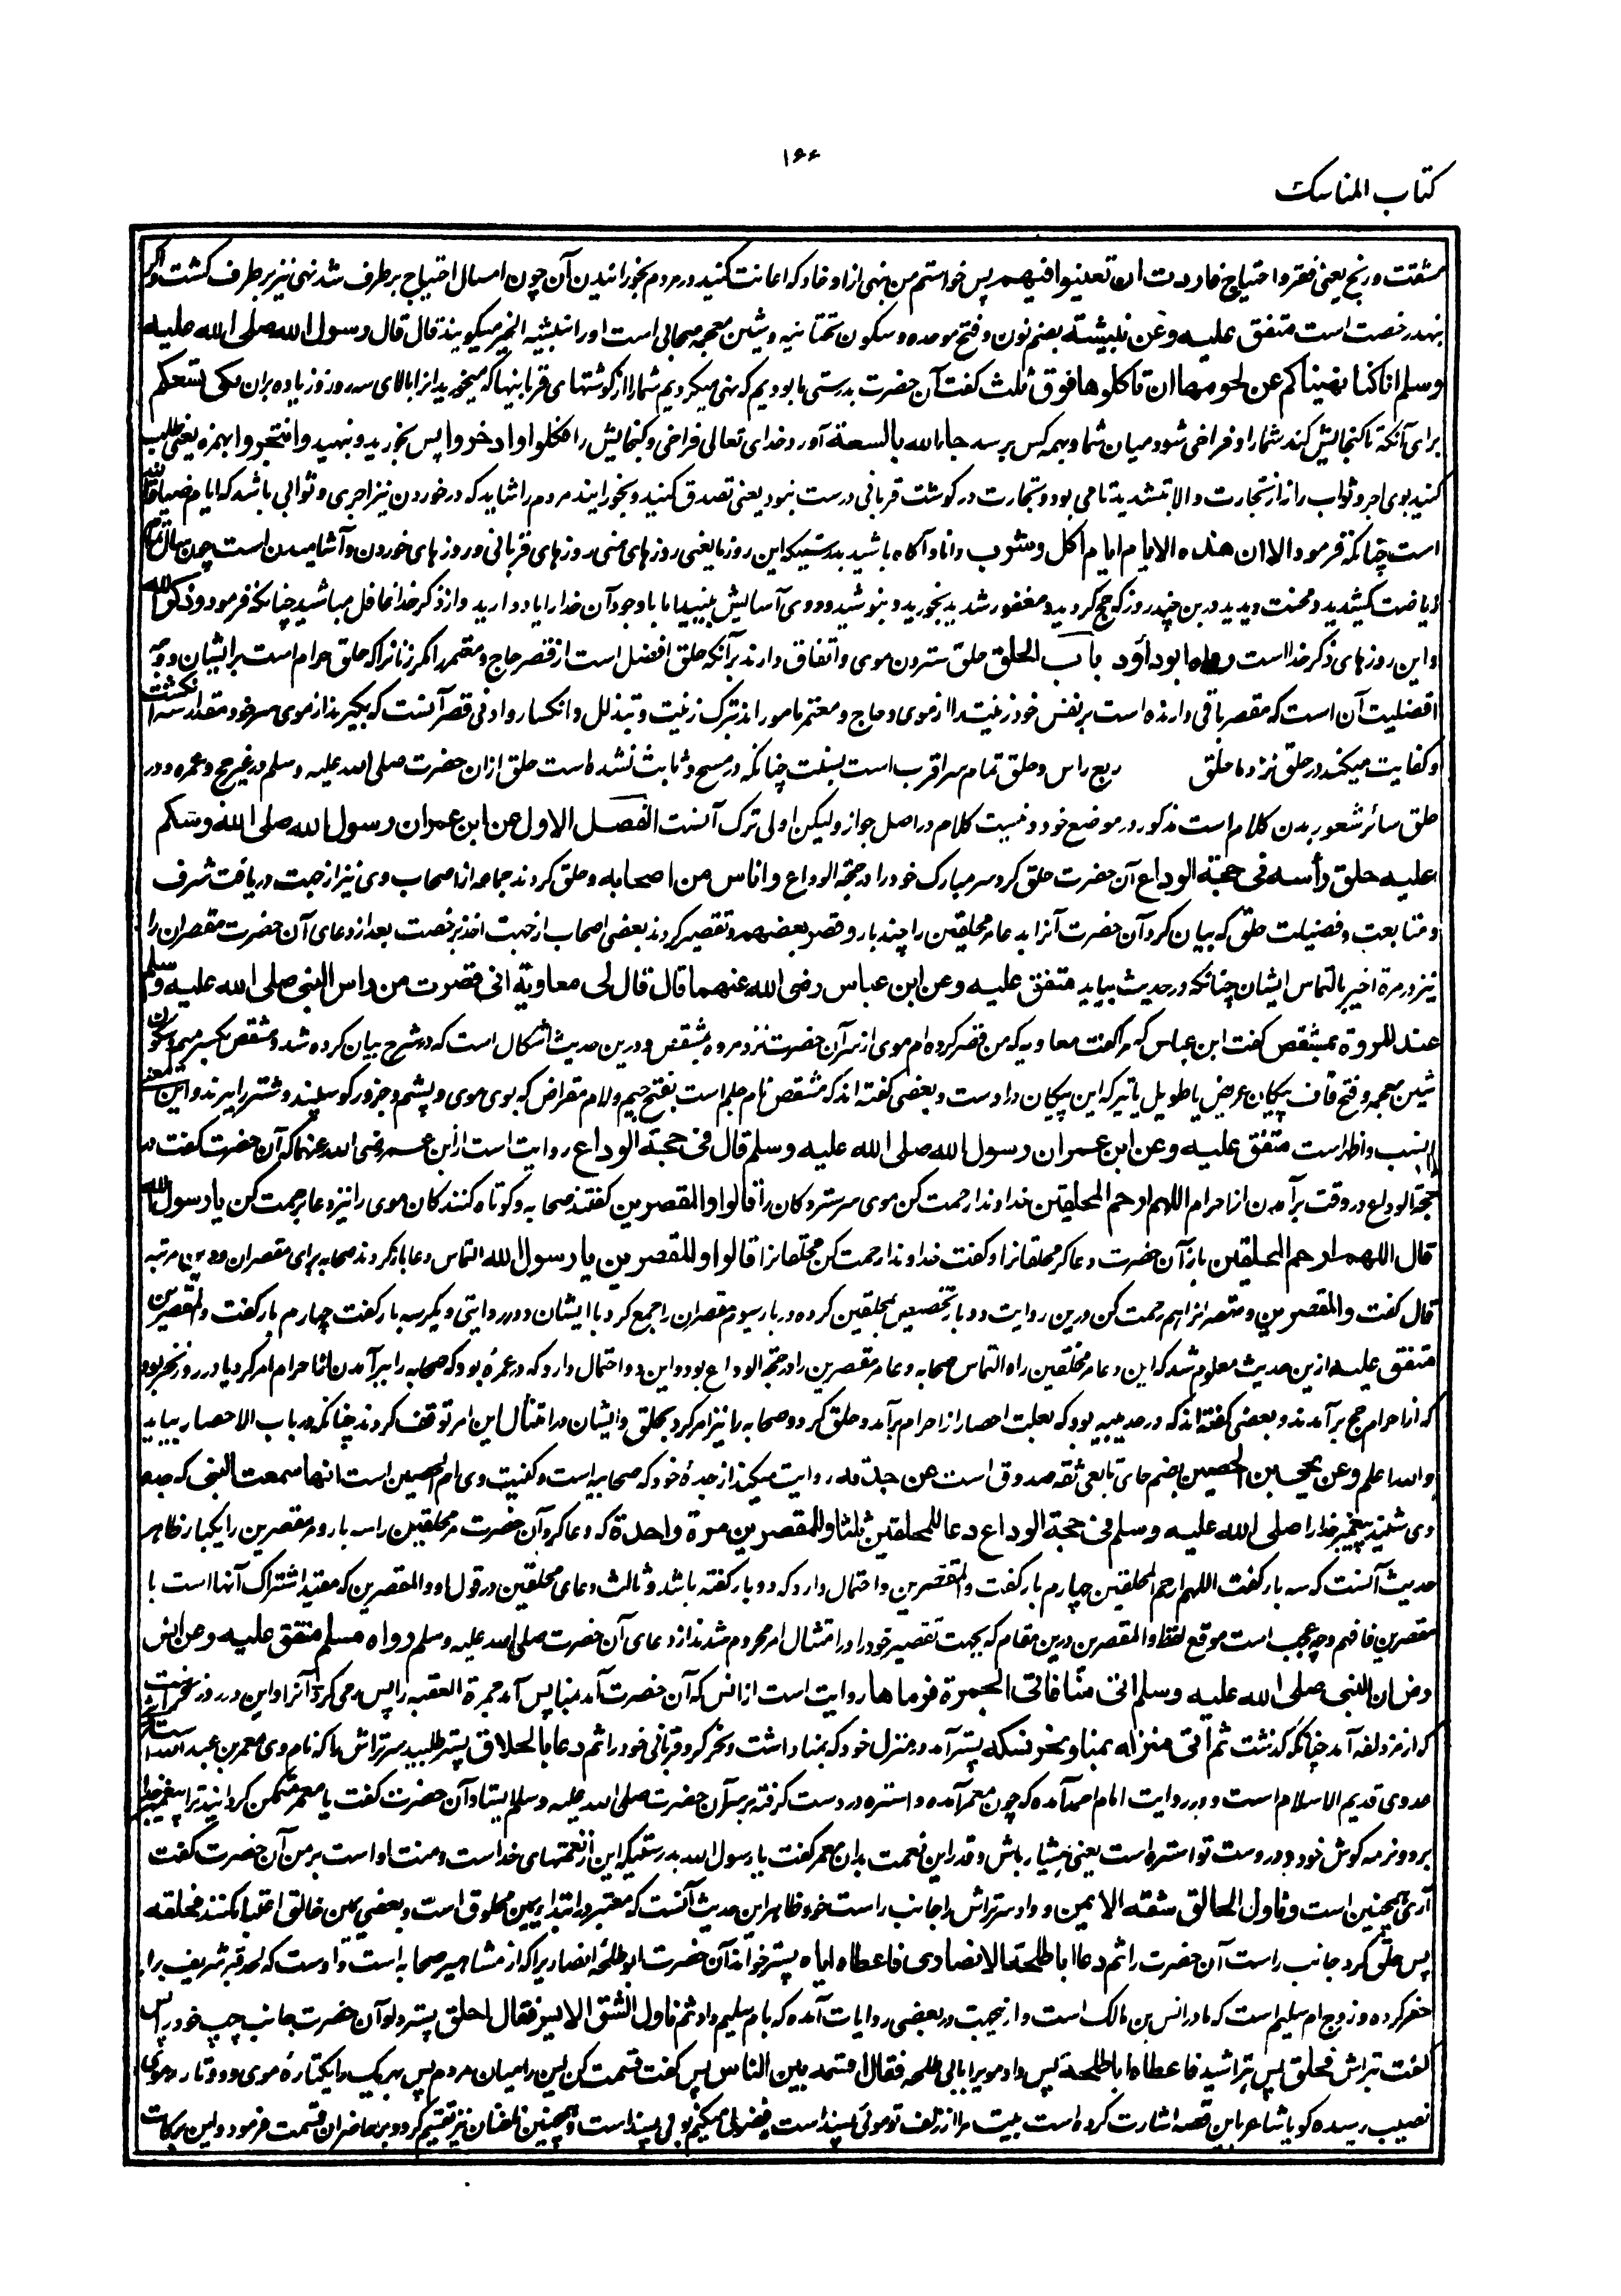 ۱۶۶
کتاب المناسک
مشقت و رنج یعنی فقر و احتیاج فاردت ان تعینوا فیهم پس خواستم من بنهی ازاو خار که اعانت کنید در مردم بخورانیدن آن چون امسال احتیاج برطرف شد نهی نیز برطرف گشت واگر
بنهد رخصت است متفق علیه وعن نبیشة بضم نون و فتح موحده و سکون تحتانیه و شین معجمه صحابی است او را نبیشة الخیر میگویند قال قال رسول الله صلی الله علیه
وسلم انا کنا نهیناکم عن لحومها ان تاکلوها فوق ثلث گفت آن حضرت بدرستی ما بودیم که نهی میکردیم شما را از گوشتهای قربانیها که میخورید انرا بالای سه روز و زیاده بران لکی تسعکم
برای آنکه تا گنجایش کند شما را و فراخی شود میان شما و بهمه کس برسد جاء الله بالسعة آورد خدای تعالی فراخی و گنجایش را فکلوا وادخروا پس بخورید و بنهید وائتجروا بهمزه یعنی طلب
کنید بوی اجر و ثواب را نه از تجارت والا بتشدید تا می بود و تجارت در گوشت قربانی درست نبود یعنی تصدق کنید و بخورانید مردم را شاید که در خوردن نیز اجری و ثوابی باشد که ایام ضیافة الله
است چنانکه فرمود الا ان هذه الایام ایام اکل وشرب دانا و آگاه باشید بدرستیکه این روزها یعنی روزهای منی روزهای قربانی و روزهای خوردن و آشامیدن است چون سال تمام
ریاضت کشیدید و محنت دیدید درین چند روز که حج کردید و مغفور شدید بخورید و بنوشید و روی آسایش ببینید اما با وجود آن خدا را یاد دارید و از ذکر خدا غافل مباشید چنانکه فرمود وذکر الله
و این روزهای ذکر خدا است رواه ابوداؤد باب الحلق حلق ستردن موی و اتفاق دارند برآنکه حلق افضل است از قصر حاج و معتمر را مگر زنانرا که حلق حرام است بر ایشان و وجه
افضلیت آن است که مقصر باقی دارنده است بر نفس خود زینت را از موی و حاج و معتمر مامور اند بترک زینت و تبذلل و انکسار و ادنی قصر آنست که بگیرند از موی سر خود مقدار سه انگشت
و کفایت میکند در حلق نزد ما حلق ربع راس و حلق تمام سر اقرب است بسنت چنانکه در مسح و ثابت نشده است حلق ازان حضرت صلی الله علیه وسلم در غیر حج و عمره و در
حلق سائر شعور بدن کلام است مذکور در موضع خود و نیست کلام در اصل جواز و لیکن اولی ترک آنست الفصل الاول عن ابن عمر ان رسول الله صلی الله وسلم
علیه حلق رأسه فی حجة الوداع آن حضرت حلق کرد سر مبارک خود را در حجة الوداع واناس من اصحابه و حلق کردند جماعه از اصحاب وی نیز از جهت دریافت شرف
و متابعت و فضیلت حلق که بیان کرد آن حضرت آنرا بدعا مر محلقین را چند بار وقصر بعضهم و تقصیر کردند بعضی اصحاب از جهت اخذ برخصت بعد از دعای آن حضرت مقصران را
نیز در مرة اخیر بالتماس ایشان چنانکه در حدیث بیاید متفق علیه وعن ابن عباس رضی الله عنهما قال قال لی معاویة انی قصرت من راس النبی صلی الله علیه وسلم
عند المروة بمشقص گفت ابن عباس که مرا گفت معاویه که من قصر کرده ام موی از سر آن حضرت نزد مروه بمشقص و درین حدیث اشکال است که در شرح بیان کرده شد و مشقص بکسر میم و سکون
شین معجمه و فتح قاف پیکان عریض یا طویل یا تیر که این پیکان دارد ست و بعضی گفته اند که مشقص نام جلم است بفتح جیم و لام مقراض که بوی موی و پشم و جزور گوسپند و شتر را ببرند و این معنی
انسب و اظهر است متفق علیه وعن ابن عمر ان رسول الله صلی الله علیه وسلم قال فی حجة الوداع روایت است از ابن عمر رضی الله عنهما که آن حضرت گفت در
حجة الوداع در وقت برآمدن از احرام اللهم ارحم المحلقین خداوندا رحمت کن موی سر ستردگان را قالوا والمقصرین گفتند صحابه و کوتاه کنندگان موی را نیز دعا برحمت کن یا رسول الله
قال اللهم ارحم المحلقین باز آن حضرت دعا کرد محلقانرا و گفت خداوندا رحمت کن محلقانرا قالوا والمقصرین یا رسول الله التماس دعا باز کردند صحابه برای مقصران درین مرتبه
قال گفت والمقصرین و مقصرانرا هم رحمت کن درین روایت دو بار تخصیص بمحلقین کرده در بار سیوم مقصران را جمع کرد با ایشان و در روایتی دیگر سه بار گفت چهارم بار گفت والمقصرین
متفق علیه ازین حدیث معلوم شد که این دعا مر محلقین را و التماس صحابه و دعا مر مقصرین را در حجة الوداع بود و این دو احتمال دارد که در عمرهٔ بود که صحابه را ببرآمدن از احرام امر کرد یا در روز نحر بود
که از احرام حج برآمدند و بعضی گفته اند که در حدیبیه بود که بعلت احصار از احرام برآمد و حلق کرد و صحابه را نیز امر کرد بحلق و ایشان در امتثال این امر توقف کردند چنانکه در باب الاحصار بیاید
والله اعلم وعن یحیی بن الحصین بضم حای تابعی ثقه صدوق است عن جدته روایت میکند از جدهٔ خود که صحابیه است و کنیت وی ام الحصین است انها سمعت النبی که جده
وی شنید پیغمبر خدا را صلی الله علیه وسلم فی حجة الوداع دعا للمحلقین ثلثا وللمقصرین مرة واحدة که دعا کرد آن حضرت مر محلقین را سه بار و مر مقصرین را یکبار ظاهر
حدیث آنست که سه بار گفت اللهم ارحم المحلقین چهارم بار گفت والمقصرین و احتمال دارد که دو بار گفته باشد و ثالث دعای محلقین در قول او والمقصرین که مفید اشتراک آنها است با
مقصرین فافهم و چه عجب است موقع لفظ والمقصرین درین مقام که بجهت تقصیر خود را در امتثال امر محروم شدند از دعای آن حضرت صلی الله علیه وسلم رواه مسلم متفق علیه وعن انس
رض ان النبی صلی الله علیه وسلم اتی منًا فاتی الجمرة فرماها روایت است از انس که آن حضرت آمد بمنا پس آمد جمرة العقبه را پس رمی کرد آنرا و این در روز نحر است
که از مزدلفه آمد چنانکه گذشت ثم اتی منزله بمنا ونحر نسکه پستر آمد در منزل خود که بمنا داشت و نحر کرد قربانی خود را ثم دعا بالحلاق پستر طلبید سرتراش را که نام وی معمر بن عبدالله است
عدوی قدیم الاسلام است و در روایت امام احمد آمده که چون معمر آمده و استره در دست گرفته بر سر آن حضرت صلی الله علیه وسلم ایستاد آن حضرت گفت یا معمر متمکن گردانید ترا پیغمبر خدا
بر دو نرمه گوش خود و در دست تو استره است یعنی هشیار باش و قدر این نعمت بدان معمر گفت یا رسول الله بدرستیکه این از نعمتهای خداست و منت او است بر من آن حضرت گفت
آری همچنین است وناول الحالق شقه الایمن و داد سرتراش را جانب راست خود ظاهر این حدیث آنست که معتبر در ابتدا یمین محلوق است و بعضی یمین حالق اعتبار کنند فحلقه
پس حلق کرد جانب راست آن حضرت را ثم دعا ابا طلحة الانصاری فاعطاه ایاه پستر خواند آن حضرت ابو طلحه انصاری را که از مشاهیر صحابه است و اوست که لحد قبر شریف را
حفر کرده و زوج ام سلیم است که مادر انس بن مالک است و ازینجهت در بعضی روایات آمده که بام سلیم داد ثم ناول الشق الایسر فقال احلق پستر داد آن حضرت جانب چپ خود را پس
گفت بتراش فحلق پس بتراشید فاعطاه ابا طلحة پس داد مویرا بابی طلحه فقال اقسمه بین الناس پس گفت قسمت کن این را میان مردم پس بهر یک را یکتاره موی و دو تاره موی
نصیب رسیده گویا شاعر باین قصه اشارت کرده است بیت مرا از زلف تو موئی بسنداست فضولی میکنم بوئی بسنداست و همچنین ناخنان نیز تقسیم کرد و بر حاضران قسمت فرمود و این برکات